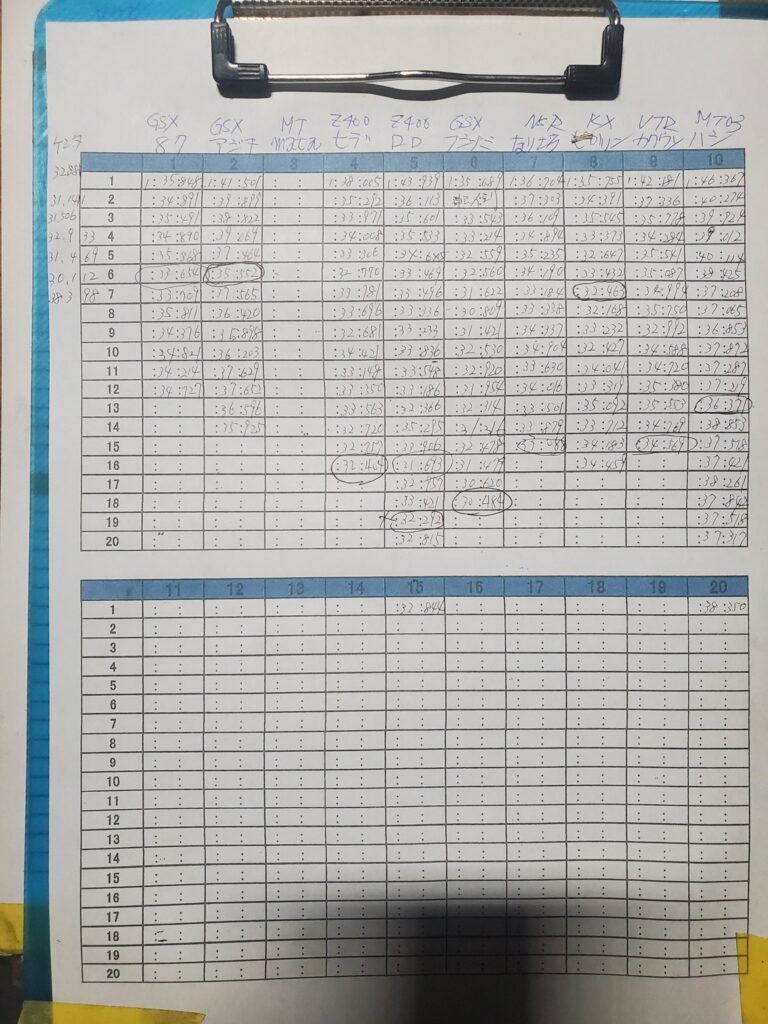 GSX GSX MT Z400 Z400 GSX NSR KX VTR MT03
87 DD
1 2 3 4 5 6 7 8 9 10
1 1:35:848 1:41:501 : : 1:38:005 1:43:939 1:35:689 1:36:704 1:35:755 1:42:181 1:46:367
2 :34:391 :39:899 : : :35:292 :36:113 :37:303 :34:391 :37:336 :40:274
3 :35:491 :38:822 : : :33:971 :35:601 :33:543 :36:109 :35:545 :35:778 :39:924
4 :34:890 :39:069 : : :34:008 :35:533 :33:214 :34:894 :33:373 :34:284 :39:012
5 :35:368 :37:464 : : :32:559 :35:235 :32:647 :35:541 :40:114
6 :33:654 :35:552 : : :32:770 :33:469 :32:560 :34:190 :33:432 :35:087 :38:425
7 :33:709 :37:565 : : :33:781 :33:496 :31:622 :33:184 :32:463 :34:994 :37:208
8 :35:811 :36:420 : : :33:696 :33:336 :30:809 :33:338 :32:168 :35:750 :37:065
9 :34:376 :35:898 : : :32:681 :33:233 :31:421 :34:337 :33:232 :32:992 :36:853
10 :34:821 :36:203 : : :34:421 :33:836 :32:530 :34:904 :32:427 :34:588 :37:872
11 :34:214 :37:629 : : :33:148 :33:548 :32:920 :33:630 :34:041 :34:720 :37:287
12 :34:727 :37:652 : : :33:350 :33:186 :31:954 :34:016 :33:319 :35:380 :37:219
13 : : :36:576 : : :33:563 :32:366 :32:314 :33:501 :35:092 :35:553 :36:371
14 : : :35:925 : : :32:720 :35:295 :31:216 :33:879 :33:712 :34:769 :38:853
15 : : : : : : :32:757 :33:906 :32:478 :33:088 :34:183 :34:569 :37:518
16 : : : : : : :32:404 :31:693 :31:479 : : :34:459 : : :37:421
17 : : : : : : : : :32:757 :30:620 : : : : : : :38:261
18 : : : : : : : : :33:421 :30:484 : : : : : : :37:842
19 : : : : : : : : :32:292 : : : : : : : : :37:518
20 : : : : : : : : :32:815 : : : : : : : : :37:317
11 12 13 14 15 16 17 18 19 20
1 : : : : : : : : :32:844 : : : : : : : : :38:350
2 : : : : : : : : : : : : : : : : : : : :
3 : : : : : : : : : : : : : : : : : : : :
4 : : : : : : : : : : : : : : : : : : : :
5 : : : : : : : : : : : : : : : : : : : :
6 : : : : : : : : : : : : : : : : : : : :
7 : : : : : : : : : : : : : : : : : : : :
8 : : : : : : : : : : : : : : : : : : : :
9 : : : : : : : : : : : : : : : : : : : :
10 : : : : : : : : : : : : : : : : : : : :
11 : : : : : : : : : : : : : : : : : : : :
12 : : : : : : : : : : : : : : : : : : : :
13 : : : : : : : : : : : : : : : : : : : :
14 : : : : : : : : : : : : : : : : : : : :
15 : : : : : : : : : : : : : : : : : : : :
16 : : : : : : : : : : : : : : : : : : : :
17 : : : : : : : : : : : : : : : : : : : :
18 : : : : : : : : : : : : : : : : : : : :
19 : : : : : : : : : : : : : : : : : : : :
20 : : : : : : : : : : : : : : : : : : : :